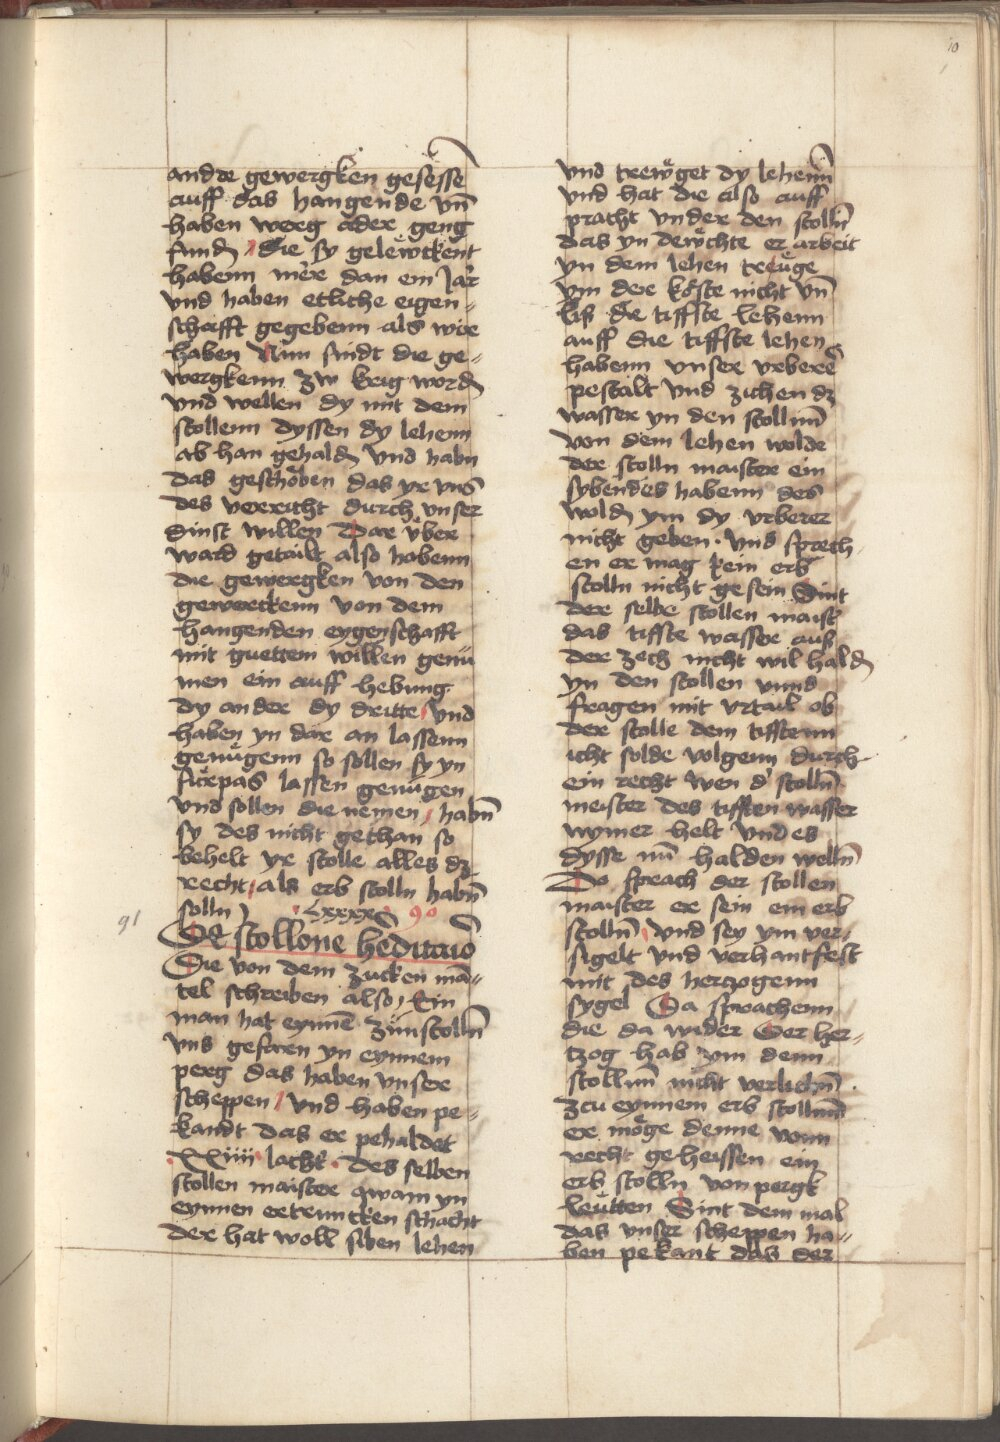 10
andre gewergken gesesse
auff das hangende vn̄
haben werg ader geng
fund die sy gelewtkent
habenn mer dan ein Jar
vnd haben etliche eigen-
schafft gegebenn als wir
haben Nun sindt die ge-
wergkenn zw krig word
vnd wellen dy mit dem
stollenn dyssen dy lehenn
ab han gehald vnd habn
das geschoben das yr vns
des verricht durch vnser
dinst willen Dar vber
ward getailt also habenn
die gewergken von den
gewerckenn von dem
hangenden eygenschafft
mit guettem willen genū
men ein auff hebung
dy ander dy dritte vnd
haben yn dar an lassenn
genugenn so sollen sy yn
furpas lassen genugen
vnd sollen die nemen habn̄
sy des nicht gethan so
behelt yr stolle alles dz
recht als erb stolln habn̄
solln
Lxxxx 90
91
De stollone heditario
Die von dem zucken mā-
tel schreiben also Ein
man hat eynnē zūnstolln̄
vns gefaren yn eynnem
perg das haben vnser
scheppen vnd haben pe-
kandt das er pehaldet
xxiiii lacht des selben
stollen maister qwam yn
eynnen ertruncken schacht
der hat woll siben lehen
vnd trewget dy lehenn̄
vnd hat die also auff
pracht vnder den stolln̄
das yn dewchte er arbeit
yn dem lehen trewge
ym der koste nicht vn̄
liß die tiffste lehenn
auff die tiffste lehen
habenn vnser vrberer
pestalt vnd zichen dz
wasser yn den stollnn̄
von dem lehen wolde
der stolln maister ein
sybendes habenn des
wold ym dy vrberer
nicht geben vnd sprech
en er mag kein erb
stolln nicht gesein Sint
der selbe stollen maist
das tiffte wasser auß
der zech nicht wil hald
yn den stollen vnnd
fragen mit vrtail ob
der stolle dem tifftenn
icht solde volgenn durch
ein recht wen d' stolln̄
meister des tifften wasser
nymer helt vnd es
dysse nū halden welln̄
Do sprach der stollen
maister er sein ein erb
stolln̄ vnd sey ym ver-
sigelt vnd verhantfest
mit des herczogenn
sygel Da sprachenn
die da wider Der her-
tzog hab ym denn
stollnn̄ nicht verlichn̄
zcu eynnem erb stollnn̄
er moge denne vonn
recht geheissen ein
erb stolln von pergk
lewtten Sint dem mal
das vnser scheppen ha-
ben pekant das der